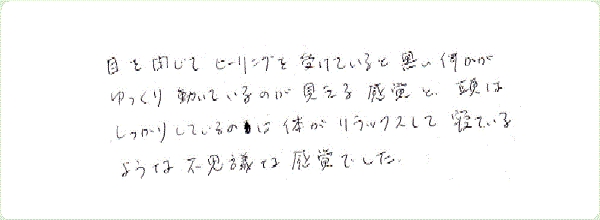 目を閉じてヒーリングを受けていると黒い何かが
ゆっくり動いているのが見える感覚と、頭は
しっかりしているのには体がリラックスして寝ている
ような不思議な感覚でした。